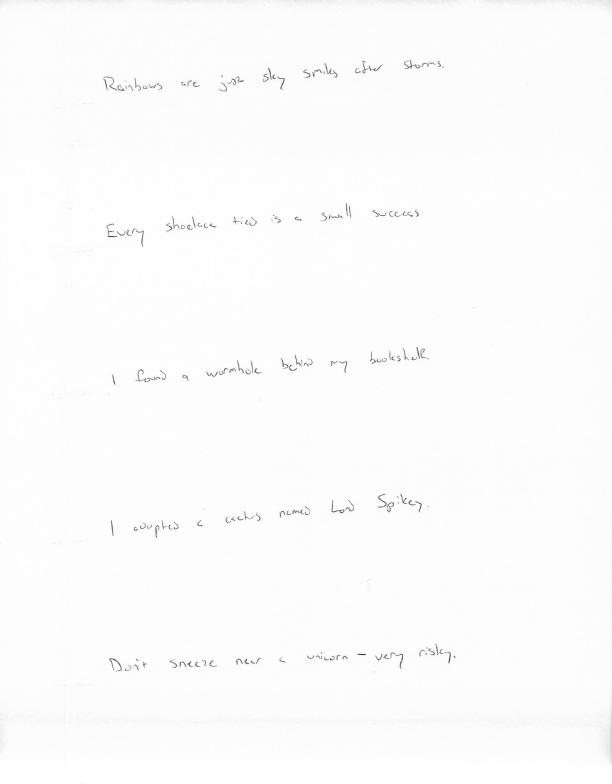 Rainbows are just sky smiles after storms.
Every shoelace tied is a small success
I found a wormhole behind my bookshelf
I adopted a cactus named Lord Spikey.
Don't sneeze near a unicorn – very risky.